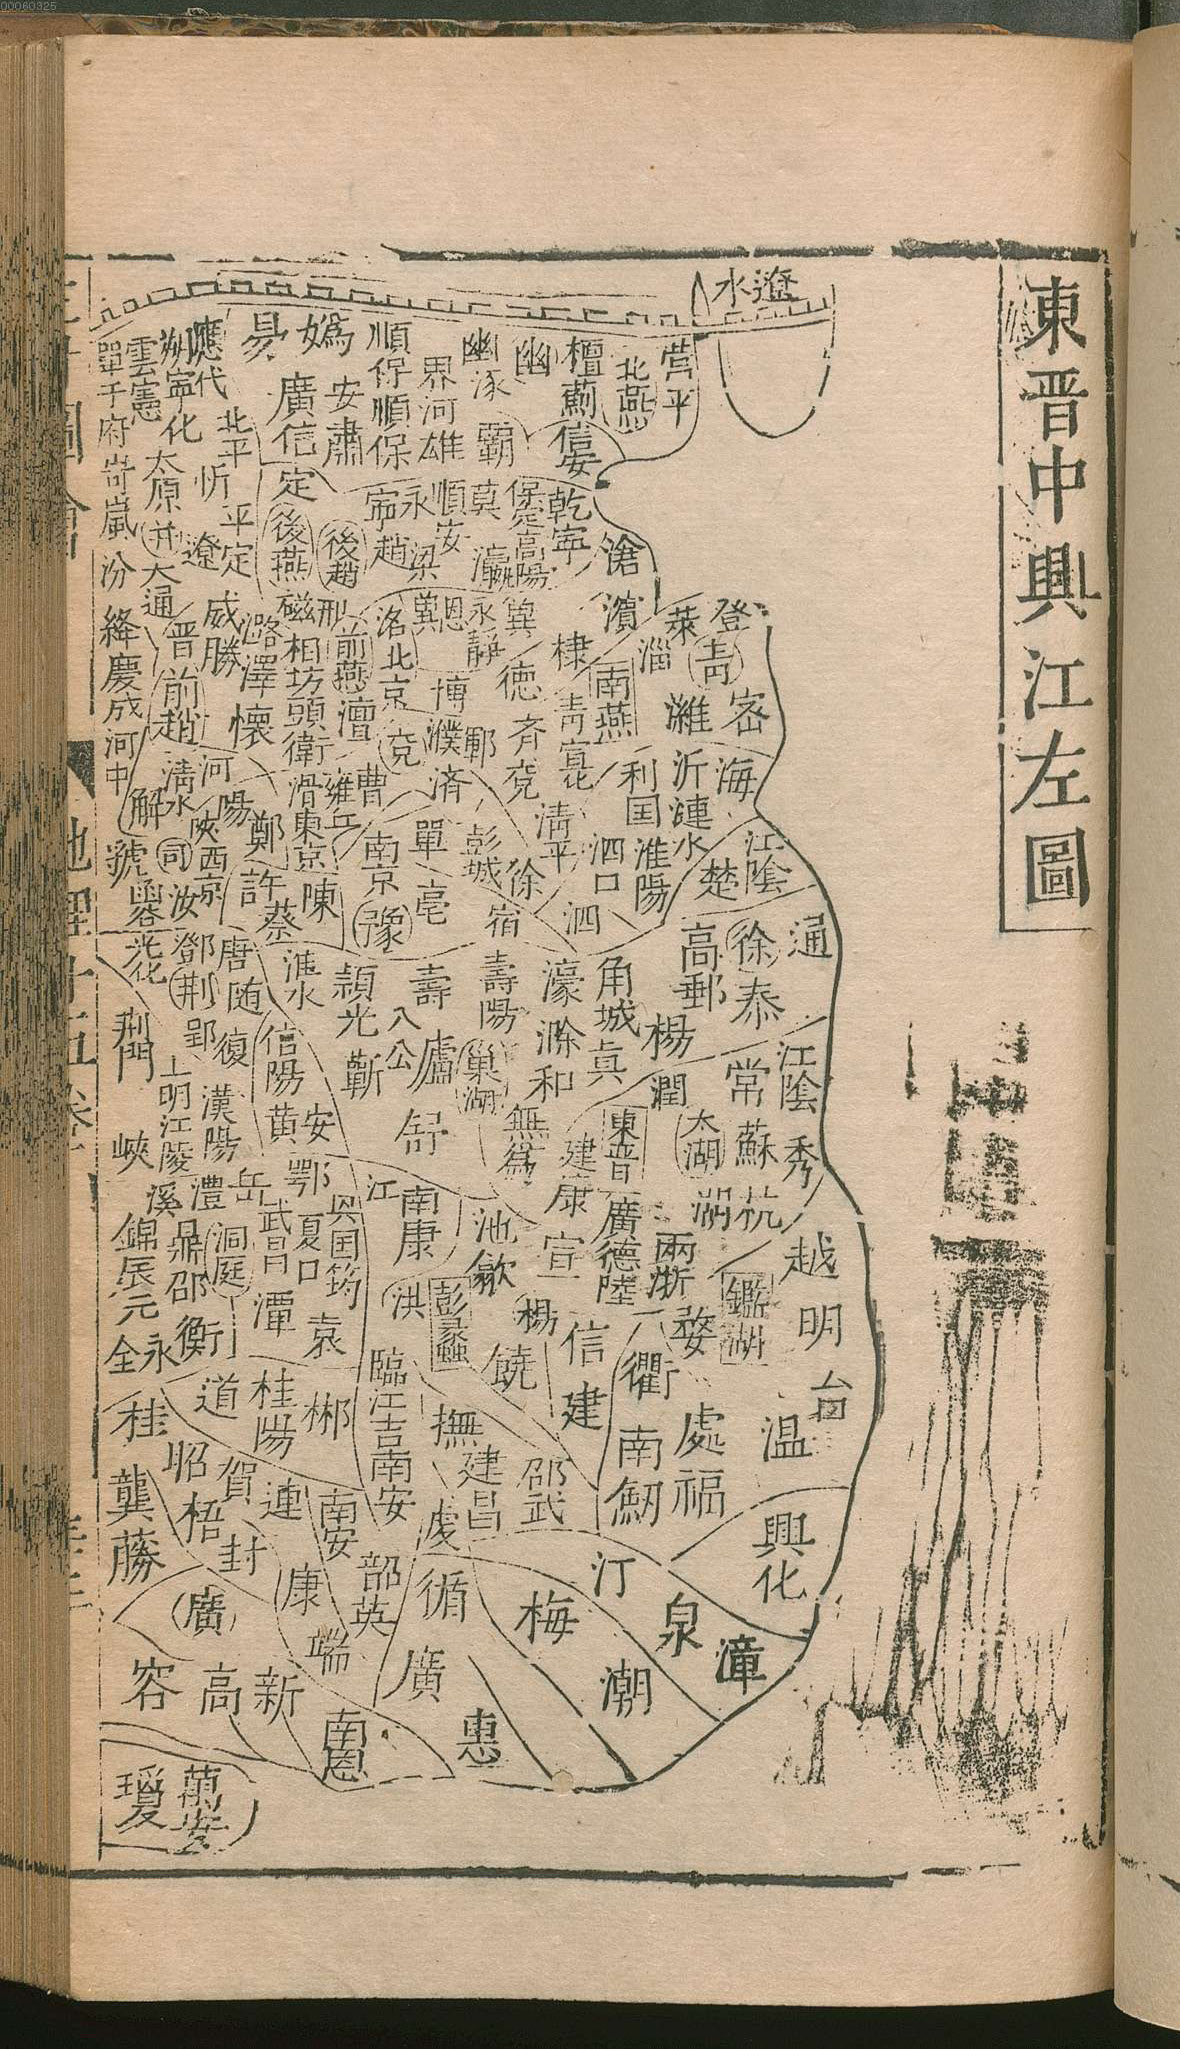 00060325
東晋中興江左圖
遼水
營平
北燕
檀薊
信安
幽
幽涿
霸
界河
雄
順保順保
媯
安肅
易
廣信
定
應代
朔寧化
雲憲
單于府
岢嵐
北平
忻
平定
太原
并
大通
遼
汾
後燕
後趙
寧趙
永
梁
順安
莫
瀛
保定
高陽
乾寧
滄
濱
登
萊
青
淄
密
濰
棣
南燕
青
冀
永靜
恩
冀
德
博
洛
北京
邢
前燕
澶
磁
相
坊頭
衛
滑
東京
陳
潞
澤
懷
威勝
晋
前趙
絳
慶成
河中
解
清水
河陽
陝
西京
司
汝
虢
鄭
許
蔡
雍丘
曹
兗
濮
濟
鄆
齊
兗
清平
利国
沂
漣水
海
江陰
楚
淮陽
泗口
泗
徐
彭城
宿
單
亳
南京
豫
光化
鄧
荆
唐
随
郢
復
荆門
漢陽
信陽
黄
安
潁
光
蘄
壽
八公
廬
舒
巢湖
壽陽
濠
滁
和
無爲
角城
真
高郵
楊
徐
泰
通
江陰
常
潤
太湖
蘇
秀
湖
杭
東晋
建康
廣德
陸
宣
兩浙
鑑湖
越
明
台
温
婺
衢
處
福
南劒
建
信
楊
饒
池
歙
彭蠡
南康
江
洪
興国
筠
袁
鄂
夏口
武昌
岳
潭
洞庭
澧
鼎
邵
衡
上明
江陵
峽
溪
錦
辰
元
全
永
桂
道
桂陽
郴
臨江
吉
南安
撫
建昌
邵武
虔
昭
梧
賀
封
連
南安
龔
藤
廣
康
端
部
英
循
廣
惠
梅
汀
潮
泉
漳
興化
容
高
新
南恩
瓊
萬安